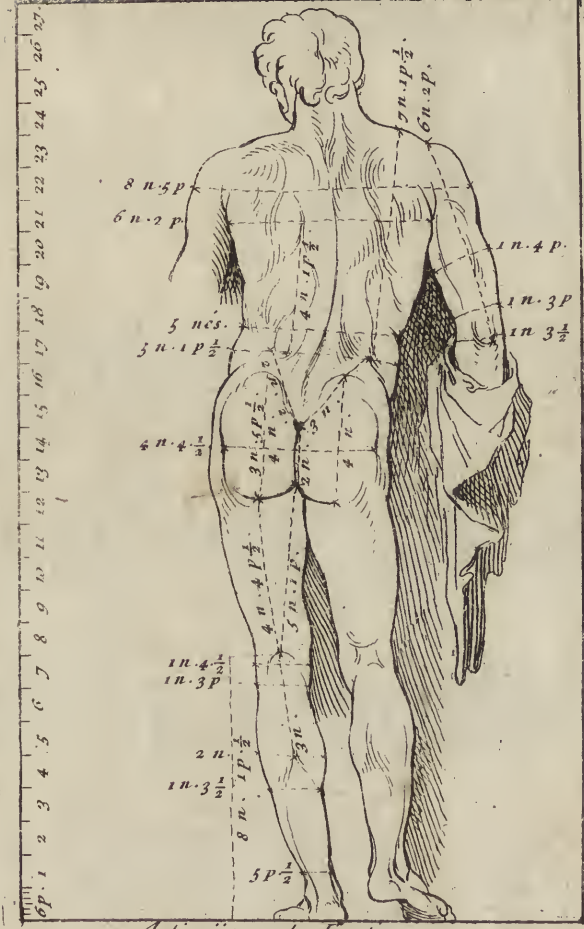 27.
26
25
24
23
22
21
20
19
18
17
16
15
14
13
12
11
10
9
8
7
6
5
4
3
2
1
6p.
7 n. 1 p 1/2.
6 n. 2 p.
8 n. 5 p
6 n. 2 p.
4 n. 1 p 1/2
1 n. 4 p.
1 n. 3 p
1 n 3 1/2
5 nés.
5 n. 1 p 1/2
3 n.
4 n. 4. 1/2
3 n. 5 p 1/2
4 n
2 n
4 n
4 n. 4 p 1/2
5 n. 1 p
1 n. 4. 1/2
1 n. 3 p
2 n
3 n.
1 n. 3 1/2
8 n. 1 p. 1/2
5 p 1/2